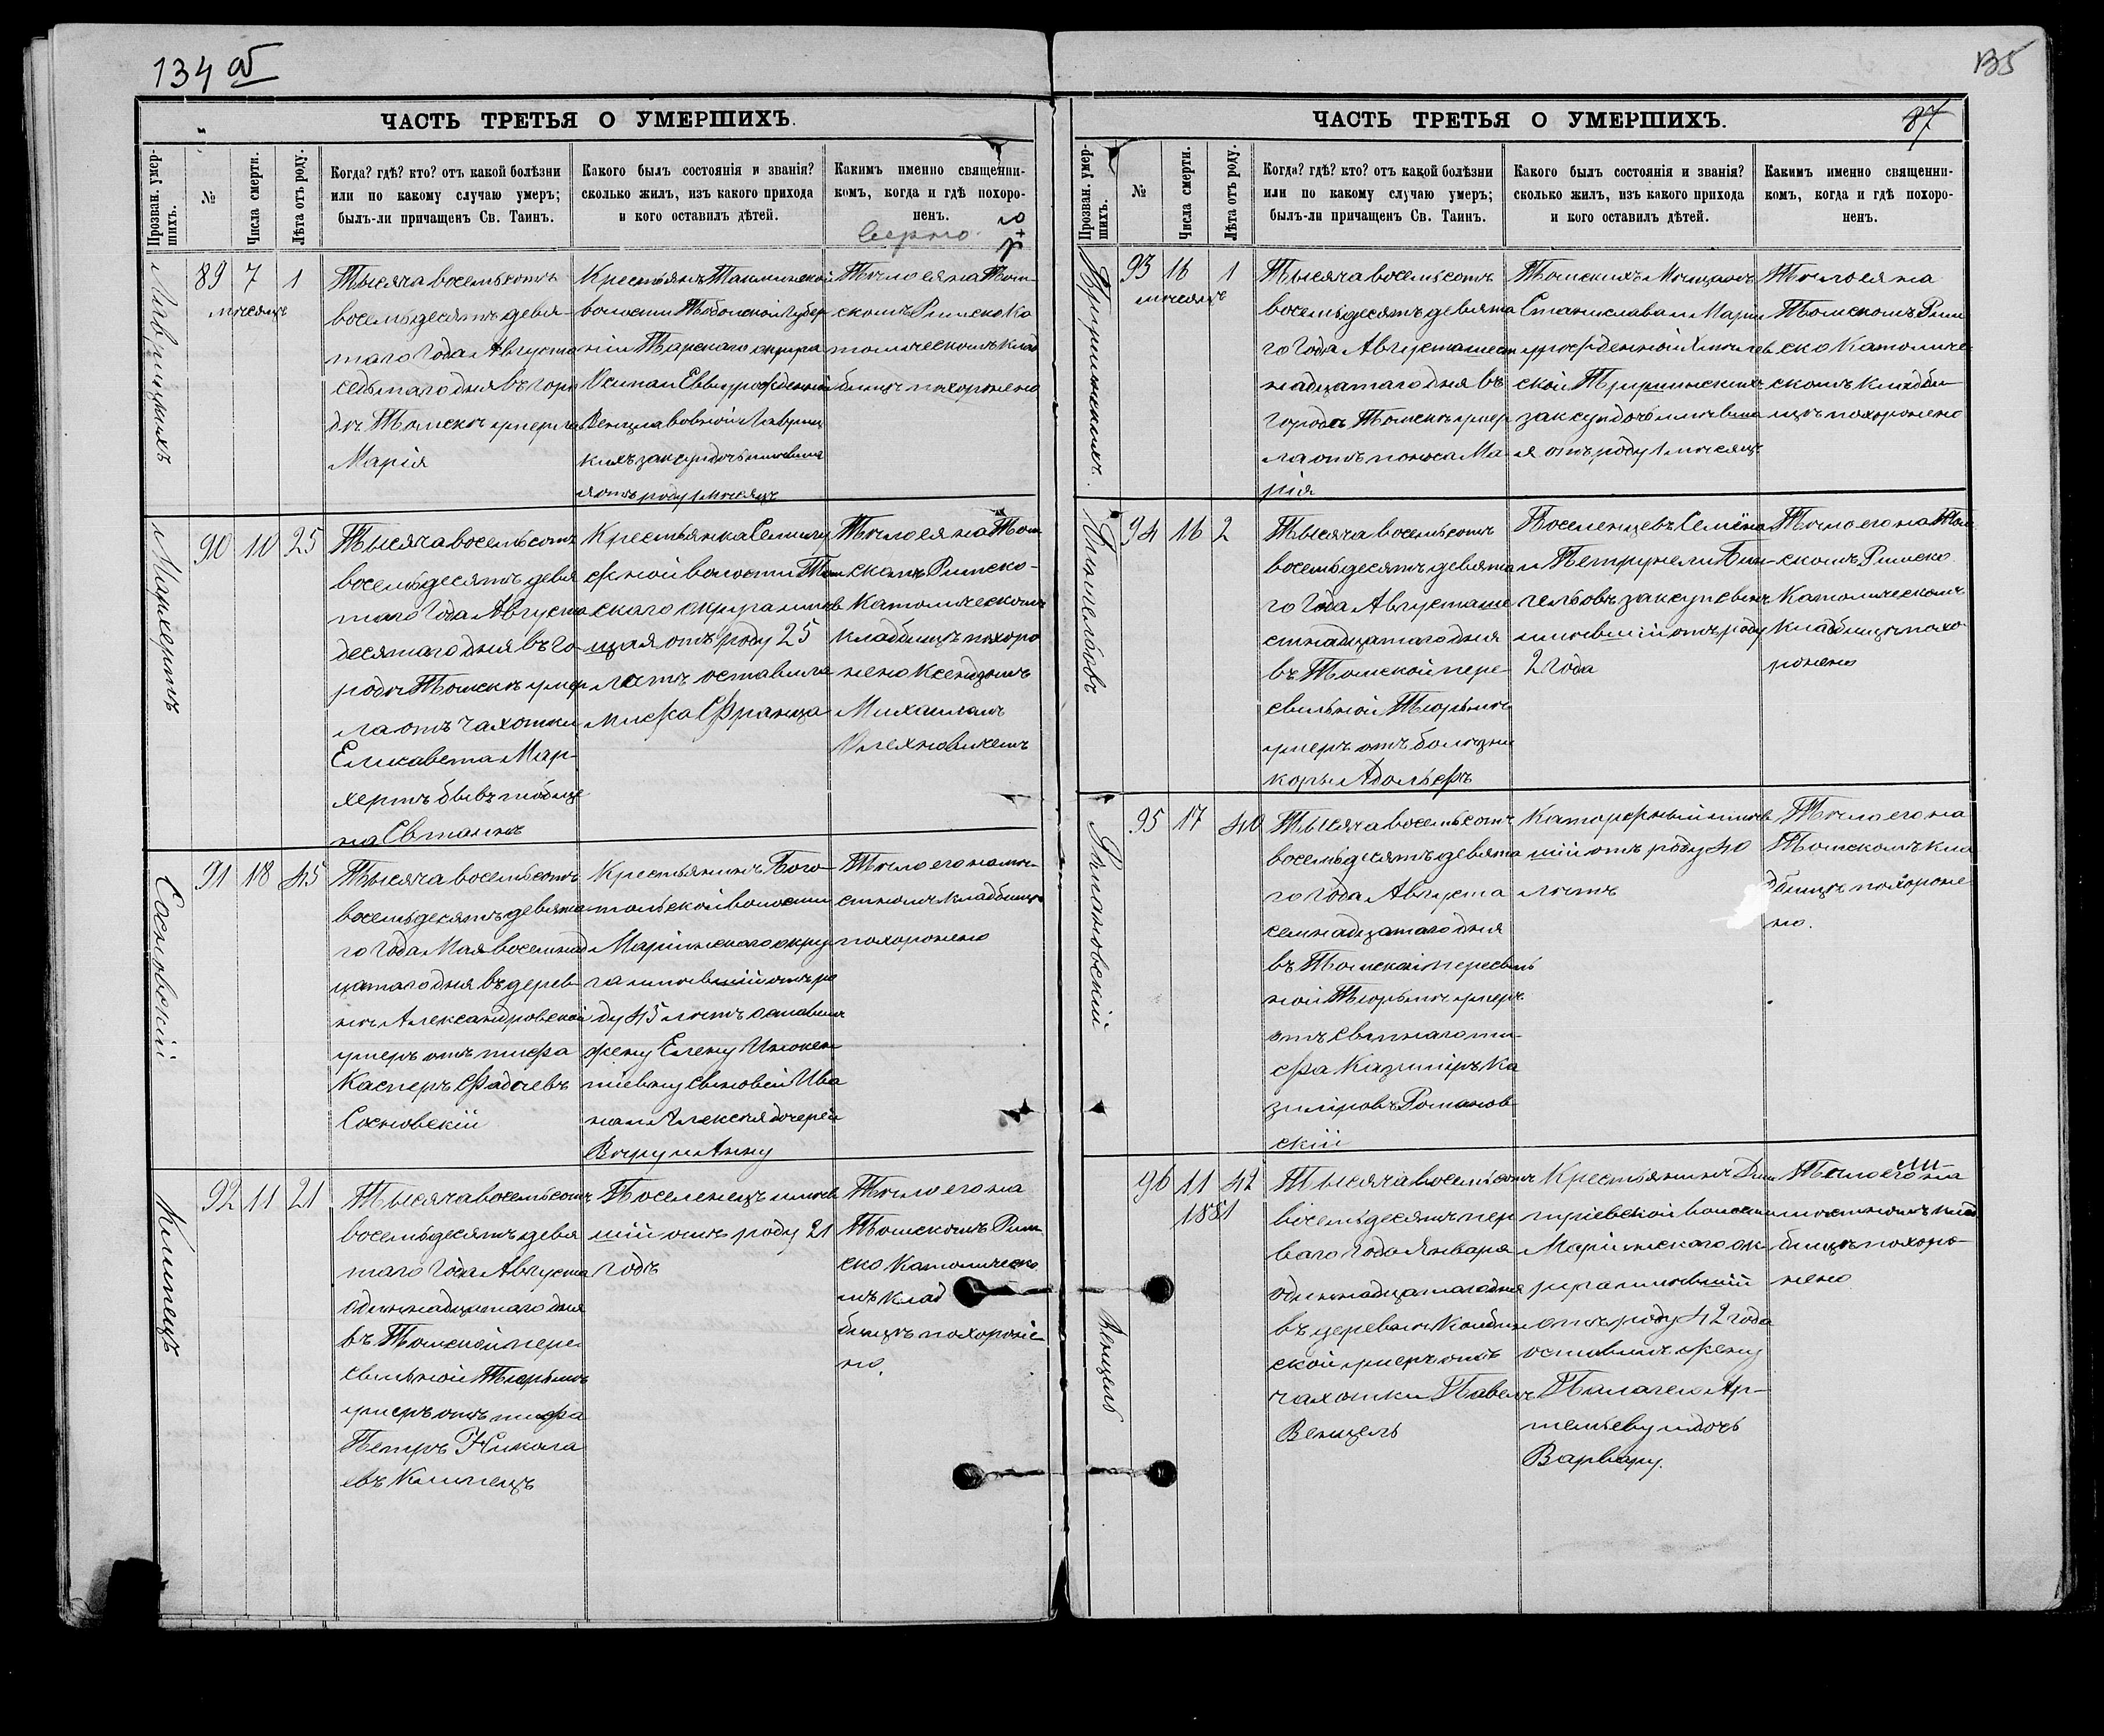 134 об
ЧАСТЬ ТРЕТЬЯ О УМЕРШИХЪ.
Прозван. умер-
шихъ.
№
Числа смерти.
Лѣта отъ роду.
Когда? гдѣ? кто? отъ какой болѣзни
или по какому случаю умеръ;
былъ-ли причащенъ Св. Таинъ.
Какого былъ состоянія и званія?
сколько жилъ, изъ какого прихода
и кого оставилъ дѣтей.
Какимъ именно священни-
комъ, когда и гдѣ похоро-
ненъ.
Верно
89 7 1
мѣсяцъ
Тысяча восемьсотъ
восемьдесятъ девя-
таго Года Августа
седьмаго дня въ горо
дѣ Томскѣ умерла
Марія
Крестьянъ
волости Тобольской Губер
ніи Тарскаго округа
Осипа и Евы урожденной
Венцлавовной Лавриц
кихъ зак. дочь жившая
отъ роду 1 мѣсяцъ
Тѣло ея на Том-
скомъ Римско Ка
толическомъ клад
бищѣ похоронено
Мархертъ
90 10 25
Тысяча восемьсотъ
восемьдесятъ девя
таго Года Августа
десятаго дня въ го-
родѣ Томскѣ умер
ла отъ чахотки
Елисавета Мар-
хертъ бывъ
на Св таинъ
Крестьянка
ной волости Том
скаго округа жив
щая отъ роду 25
лѣтъ оставила
мужа Франца
Тѣло ея на Том
скомъ Римско-
Католическомъ
кладбищѣ похоро
нено Ксендзомъ
Михаиломъ
Олехновичемъ
Сосновскій
91 18 45
Тысяча восемьсотъ
восемьдесятъ девята
го Года Мая восемнад
цатаго дня въ дерев
нѣ Александровской
умеръ отъ тифа
Касперъ Фадѣевъ
Сосновскій
Крестьянинъ Бого-
тольской волости
Маріинскаго окру
га жившій отъ ро
ду 45 лѣтъ оставилъ
жену Елену Инокен
тіевну сыновей Ива
на и Алексѣя дочерей
Вѣру и Анну
Тѣло его на мѣ-
стномъ кладбищѣ
похоронено
Климецъ
92 11 21
Тысяча восемьсотъ
восемьдесятъ девя
таго Года Августа
одиннадцатаго дня
въ Томской пере
сыльной Тюрьмѣ
умеръ отъ тифа
Петръ Никола
евъ Климецъ
Поселенецъ жив
шій отъ роду 21
годъ
Тѣло его на
Томскомъ Рим
ско Католическо
мъ клад
бищѣ похороне
но.
135
87
ЧАСТЬ ТРЕТЬЯ О УМЕРШИХЪ.
Прозван. умер-
шихъ.
№
Числа смерти.
Лѣта отъ роду.
Когда? гдѣ? кто? отъ какой болѣзни
или по какому случаю умеръ;
былъ-ли причащенъ Св. Таинъ.
Какого былъ состоянія и званія?
сколько жилъ, изъ какого прихода
и кого оставилъ дѣтей.
Какимъ именно священни-
комъ, когда и гдѣ похоро-
ненъ.
93 16 1
мѣсяцъ
Тысяча восемьсотъ
восемьдесятъ девята
го Года Августа шест
надцатаго дня въ
городѣ Томскѣ умер
ла отъ поноса Ма
рія
Томскихъ Мѣщанъ
Станислава и Маріи
урожденной
ской
зак дочь жившая
отъ роду 1 мѣсяцъ
Тѣло ея на
Томскомъ Рим
ско Католиче
скомъ кладби
щѣ похоронено
94 16 2
Тысяча восемьсотъ
восемьдесятъ девята
го Года Августа ше
стнадцатаго дня
въ Томской пере-
сыльной Тюрьмѣ
умеръ отъ болѣзни
кори Адольфъ
Поселенцевъ Семёна
и Петрунели Бин-
гельовъ зак сынъ
жившій отъ роду
2 Года
Тѣло его на Том
скомъ Римско
Католическомъ
Кладбищѣ похо-
ронено
95 17 40
Тысяча восемьсотъ
восемьдесятъ девята
го Года Августа
семнадцатаго дня
въ Томской пересыль
ной Тюрьмѣ умеръ
отъ сыпнаго ти-
фа Казиміръ Ка
зиміровъ Романов
скій
Каторжный жив
шій отъ роду 40
лѣтъ
Тѣло его на
Томскомъ кла
дбищѣ похороне
но.
Романовскій
96 11 42
1881
Тысяча восемьсотъ
восемьдесятъ пер
ваго Года Января
одиннадцатаго дня
въ деревнѣ
ской умеръ отъ
чахотки Павелъ
Венцель
Крестьянинъ Дми
тріевской волости
Маріинскаго ок
руга жившій
отъ роду 42 года
оставилъ жену
Палагею Ар-
темьеву и дочь
Варвару.
Тѣло его на
мѣстномъ клад
бищѣ похоро-
нено
Венцель